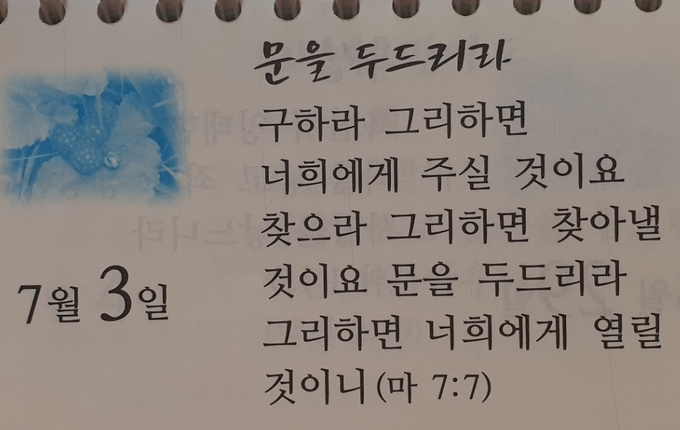 문을 두드리라
구하라 그리하면
너희에게 주실 것이요
찾으라 그리하면 찾아낼
것이요 문을 두드리라
그리하면 너희에게 열릴
것이니(마 7:7)
7월 3일